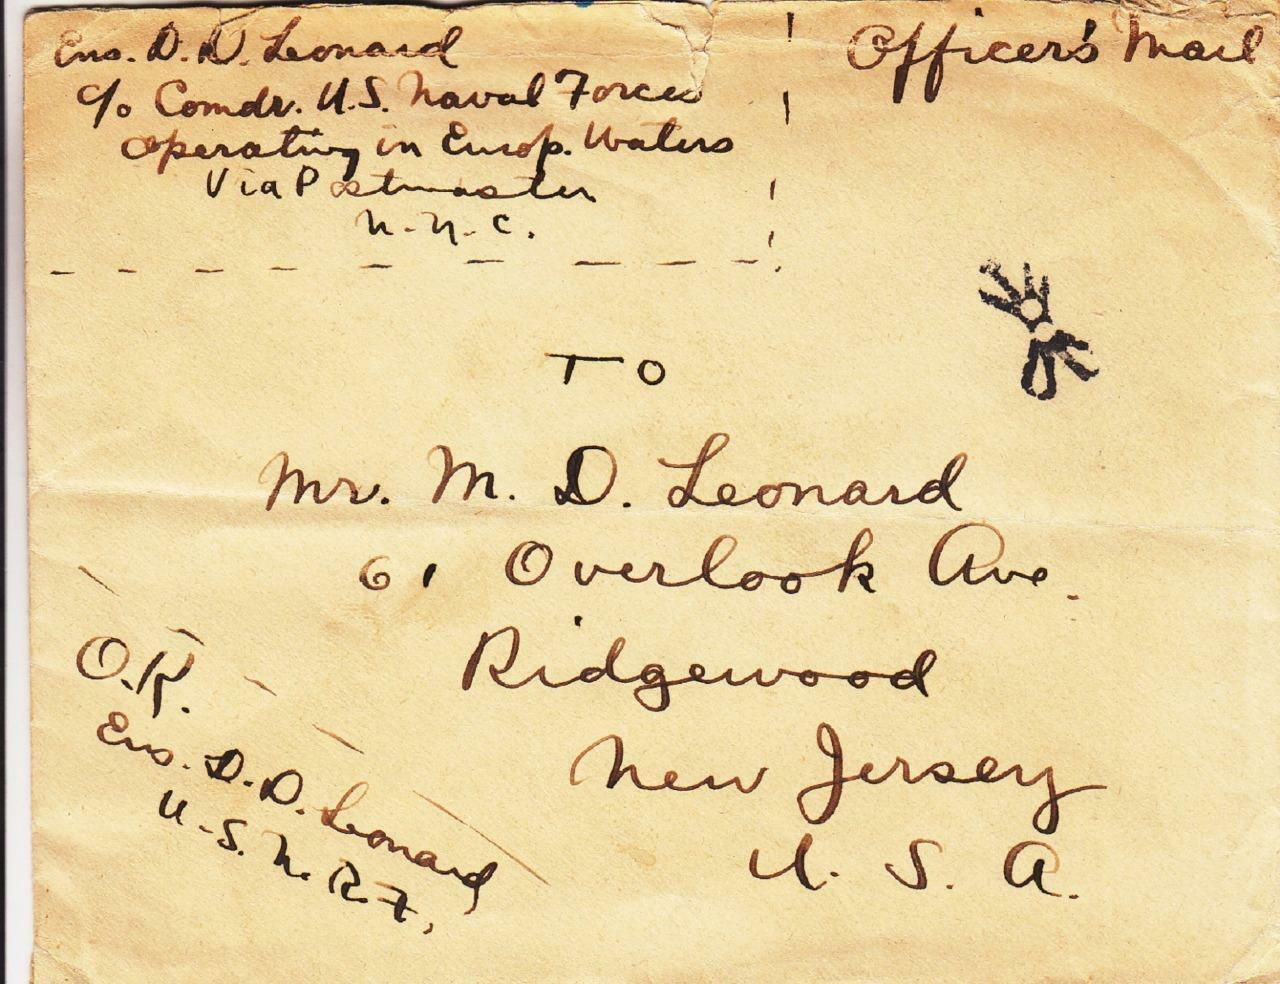 Ens. D. D. Leonard
c/o Comdr. U.S. Naval Forces
operating in Europ. Waters
Via Postmaster
N.Y.C.
Officer's Mail
TO
Mr. M. D. Leonard
61 Overlook Ave.
Ridgewood
New Jersey
U. S. A.
O.K.
Ens. D. D. Leonard
U.S.N.R.F.